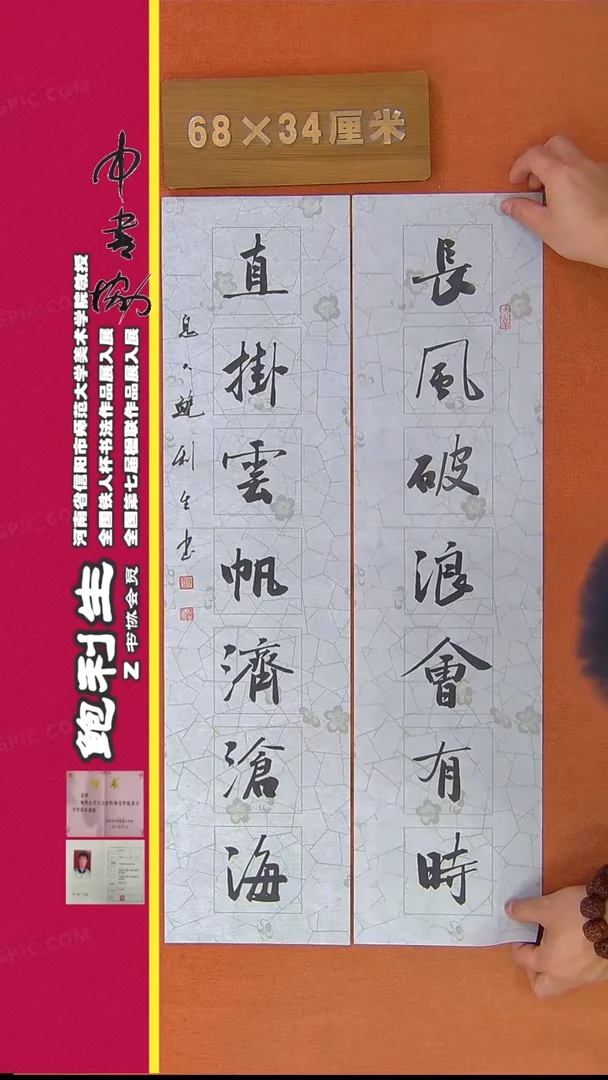 68×34厘米
長風破浪會有時
直掛雲帆濟滄海
鲍利生书
中书协
河南省信阳市师范大学美术学院教授
全国铁人杯书法作品展入展
全国第七届楹联作品展入展
鲍利生
Z书协会员